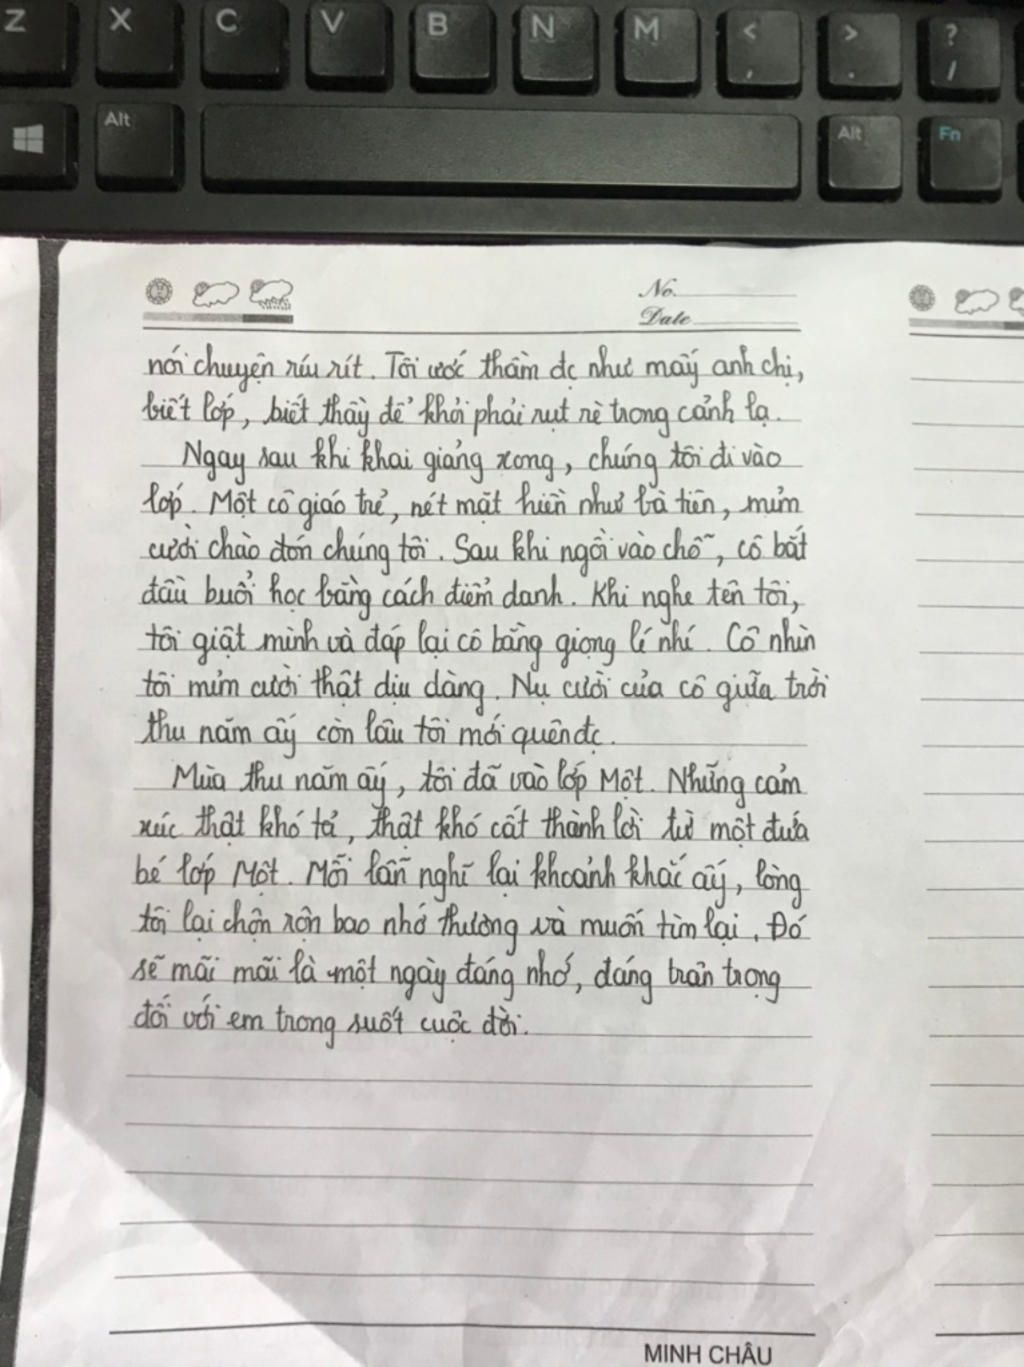 Z X C V B N M < , > . ? /
Alt Alt Fn
No.
Date
nói chuyện ríu rít. Tôi ước thầm đc như mấy anh chị,
biết lớp, biết thầy để khỏi phải rụt rè trong cảnh lạ.
Ngay sau khi khai giảng xong, chúng tôi đi vào
lớp. Một cô giáo trẻ, nét mặt hiền như bà tiên, mỉm
cười chào đón chúng tôi. Sau khi ngồi vào chỗ, cô bắt
đầu buổi học bằng cách điểm danh. Khi nghe tên tôi,
tôi giật mình và đáp lại cô bằng giọng lí nhí. Cô nhìn
tôi mỉm cười thật dịu dàng. Nụ cười của cô giữa trời
thu năm ấy còn lâu tôi mới quên đc.
Mùa thu năm ấy, tôi đã vào lớp Một. Những cảm
xúc thật khó tả, thật khó cất thành lời từ một đứa
bé lớp Một. Mỗi lần nghĩ lại khoảnh khắc ấy, lòng
tôi lại chộn rộn bao nhớ thương và muốn tìm lại. Đó
sẽ mãi mãi là một ngày đáng nhớ, đáng trân trọng
đối với em trong suốt cuộc đời.
MINH CHÂU